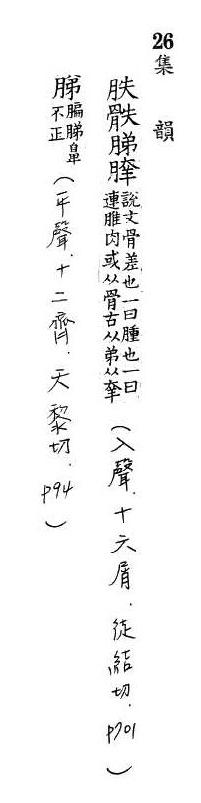 26 集韻
胅
說文骨差也一曰腫也一曰
連腄肉或从骨古从弟从
(入聲.十六屑.徒結切.p701)
不正
(平聲.十二齊.天黎切.p94)